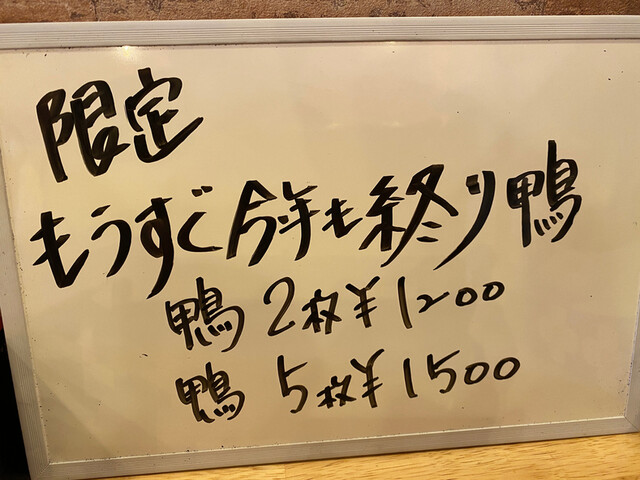 限定
もうすぐ今年も終り鴨
鴨 2枚¥1200
鴨 5枚¥1500